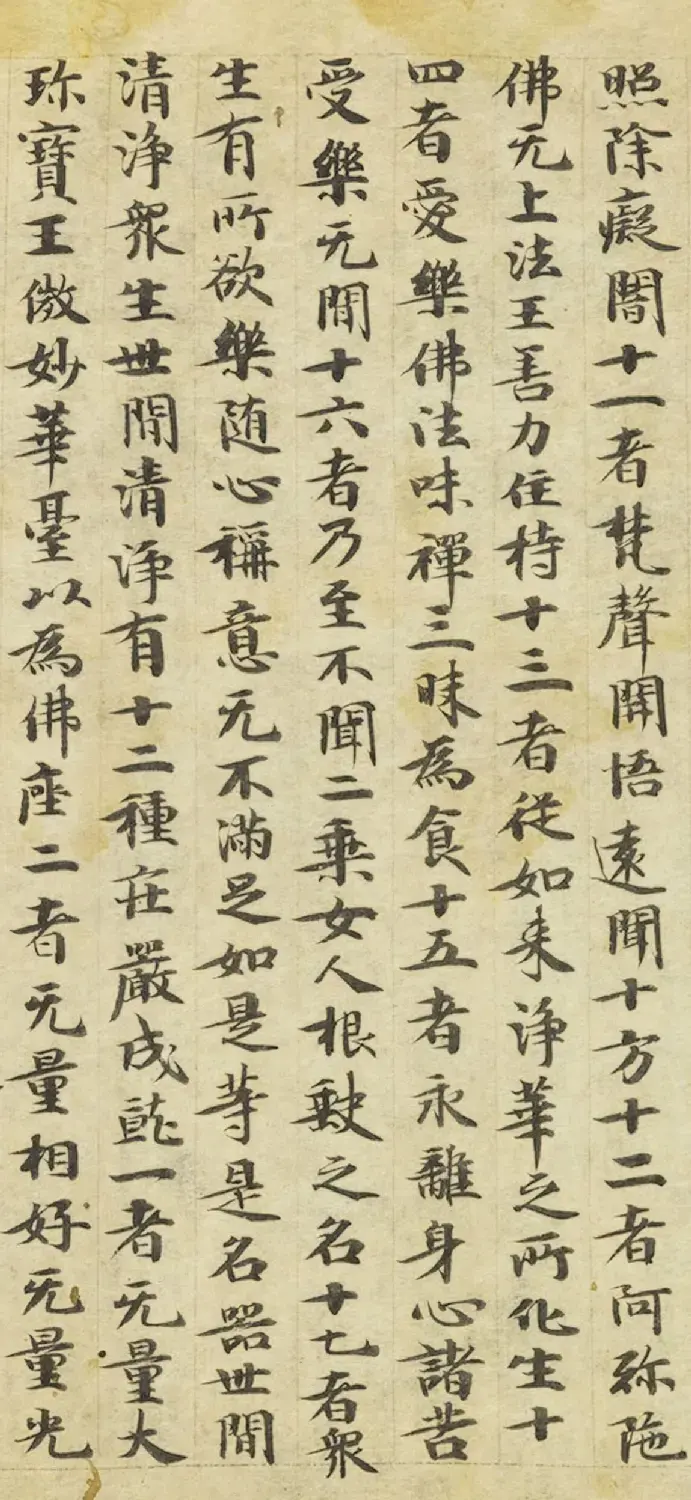 照除癡闇十一者梵聲開悟遠聞十方十二者阿弥陁
佛无上法王善力住持十三者從如来淨華之所化生十
四者愛樂佛法味禪三昧為食十五者永離身心諸苦
受樂无間十六者乃至不聞二乘女人根缺之名十七者衆
生有所欲樂随心稱意无不滿足如是等是名器世間
清淨衆生世間清淨有十二種庄嚴成就一者无量大
珎寶王微妙華臺以為佛座二者无量相好无量光